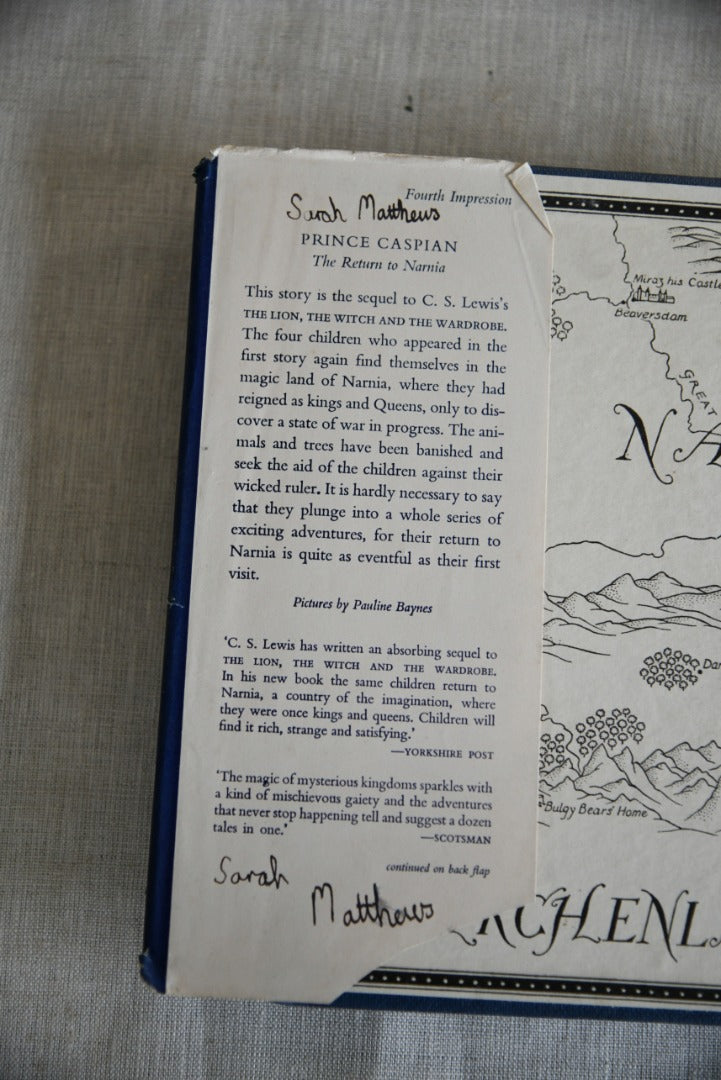 Fourth Impression
Sarah Matthews
PRINCE CASPIAN
The Return to Narnia
This story is the sequel to C. S. Lewis's
THE LION, THE WITCH AND THE WARDROBE.
The four children who appeared in the
first story again find themselves in the
magic land of Narnia, where they had
reigned as kings and Queens, only to dis-
cover a state of war in progress. The ani-
mals and trees have been banished and
seek the aid of the children against their
wicked ruler. It is hardly necessary to say
that they plunge into a whole series of
exciting adventures, for their return to
Narnia is quite as eventful as their first
visit.
Pictures by Pauline Baynes
'C. S. Lewis has written an absorbing sequel to
THE LION, THE WITCH AND THE WARDROBE.
In his new book the same children return to
Narnia, a country of the imagination, where
they were once kings and queens. Children will
find it rich, strange and satisfying.'
—YORKSHIRE POST
'The magic of mysterious kingdoms sparkles with
a kind of mischievous gaiety and the adventures
that never stop happening tell and suggest a dozen
tales in one.'
—SCOTSMAN
continued on back flap
Sarah
Matthews
Miraz his Castle
Beaversdam
GREAT
NA
Dan
Bulgy Bears' Home
RCHENL